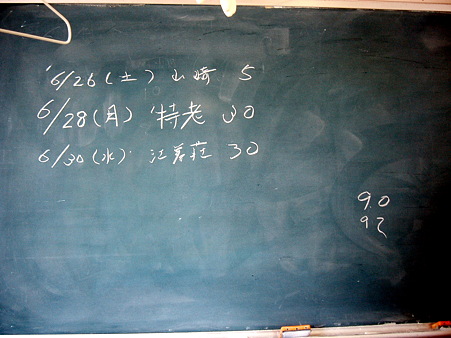 6/26(土) 山崎 5
6/28(月) 特老 30
6/30(水) 江着荘 30
90
92